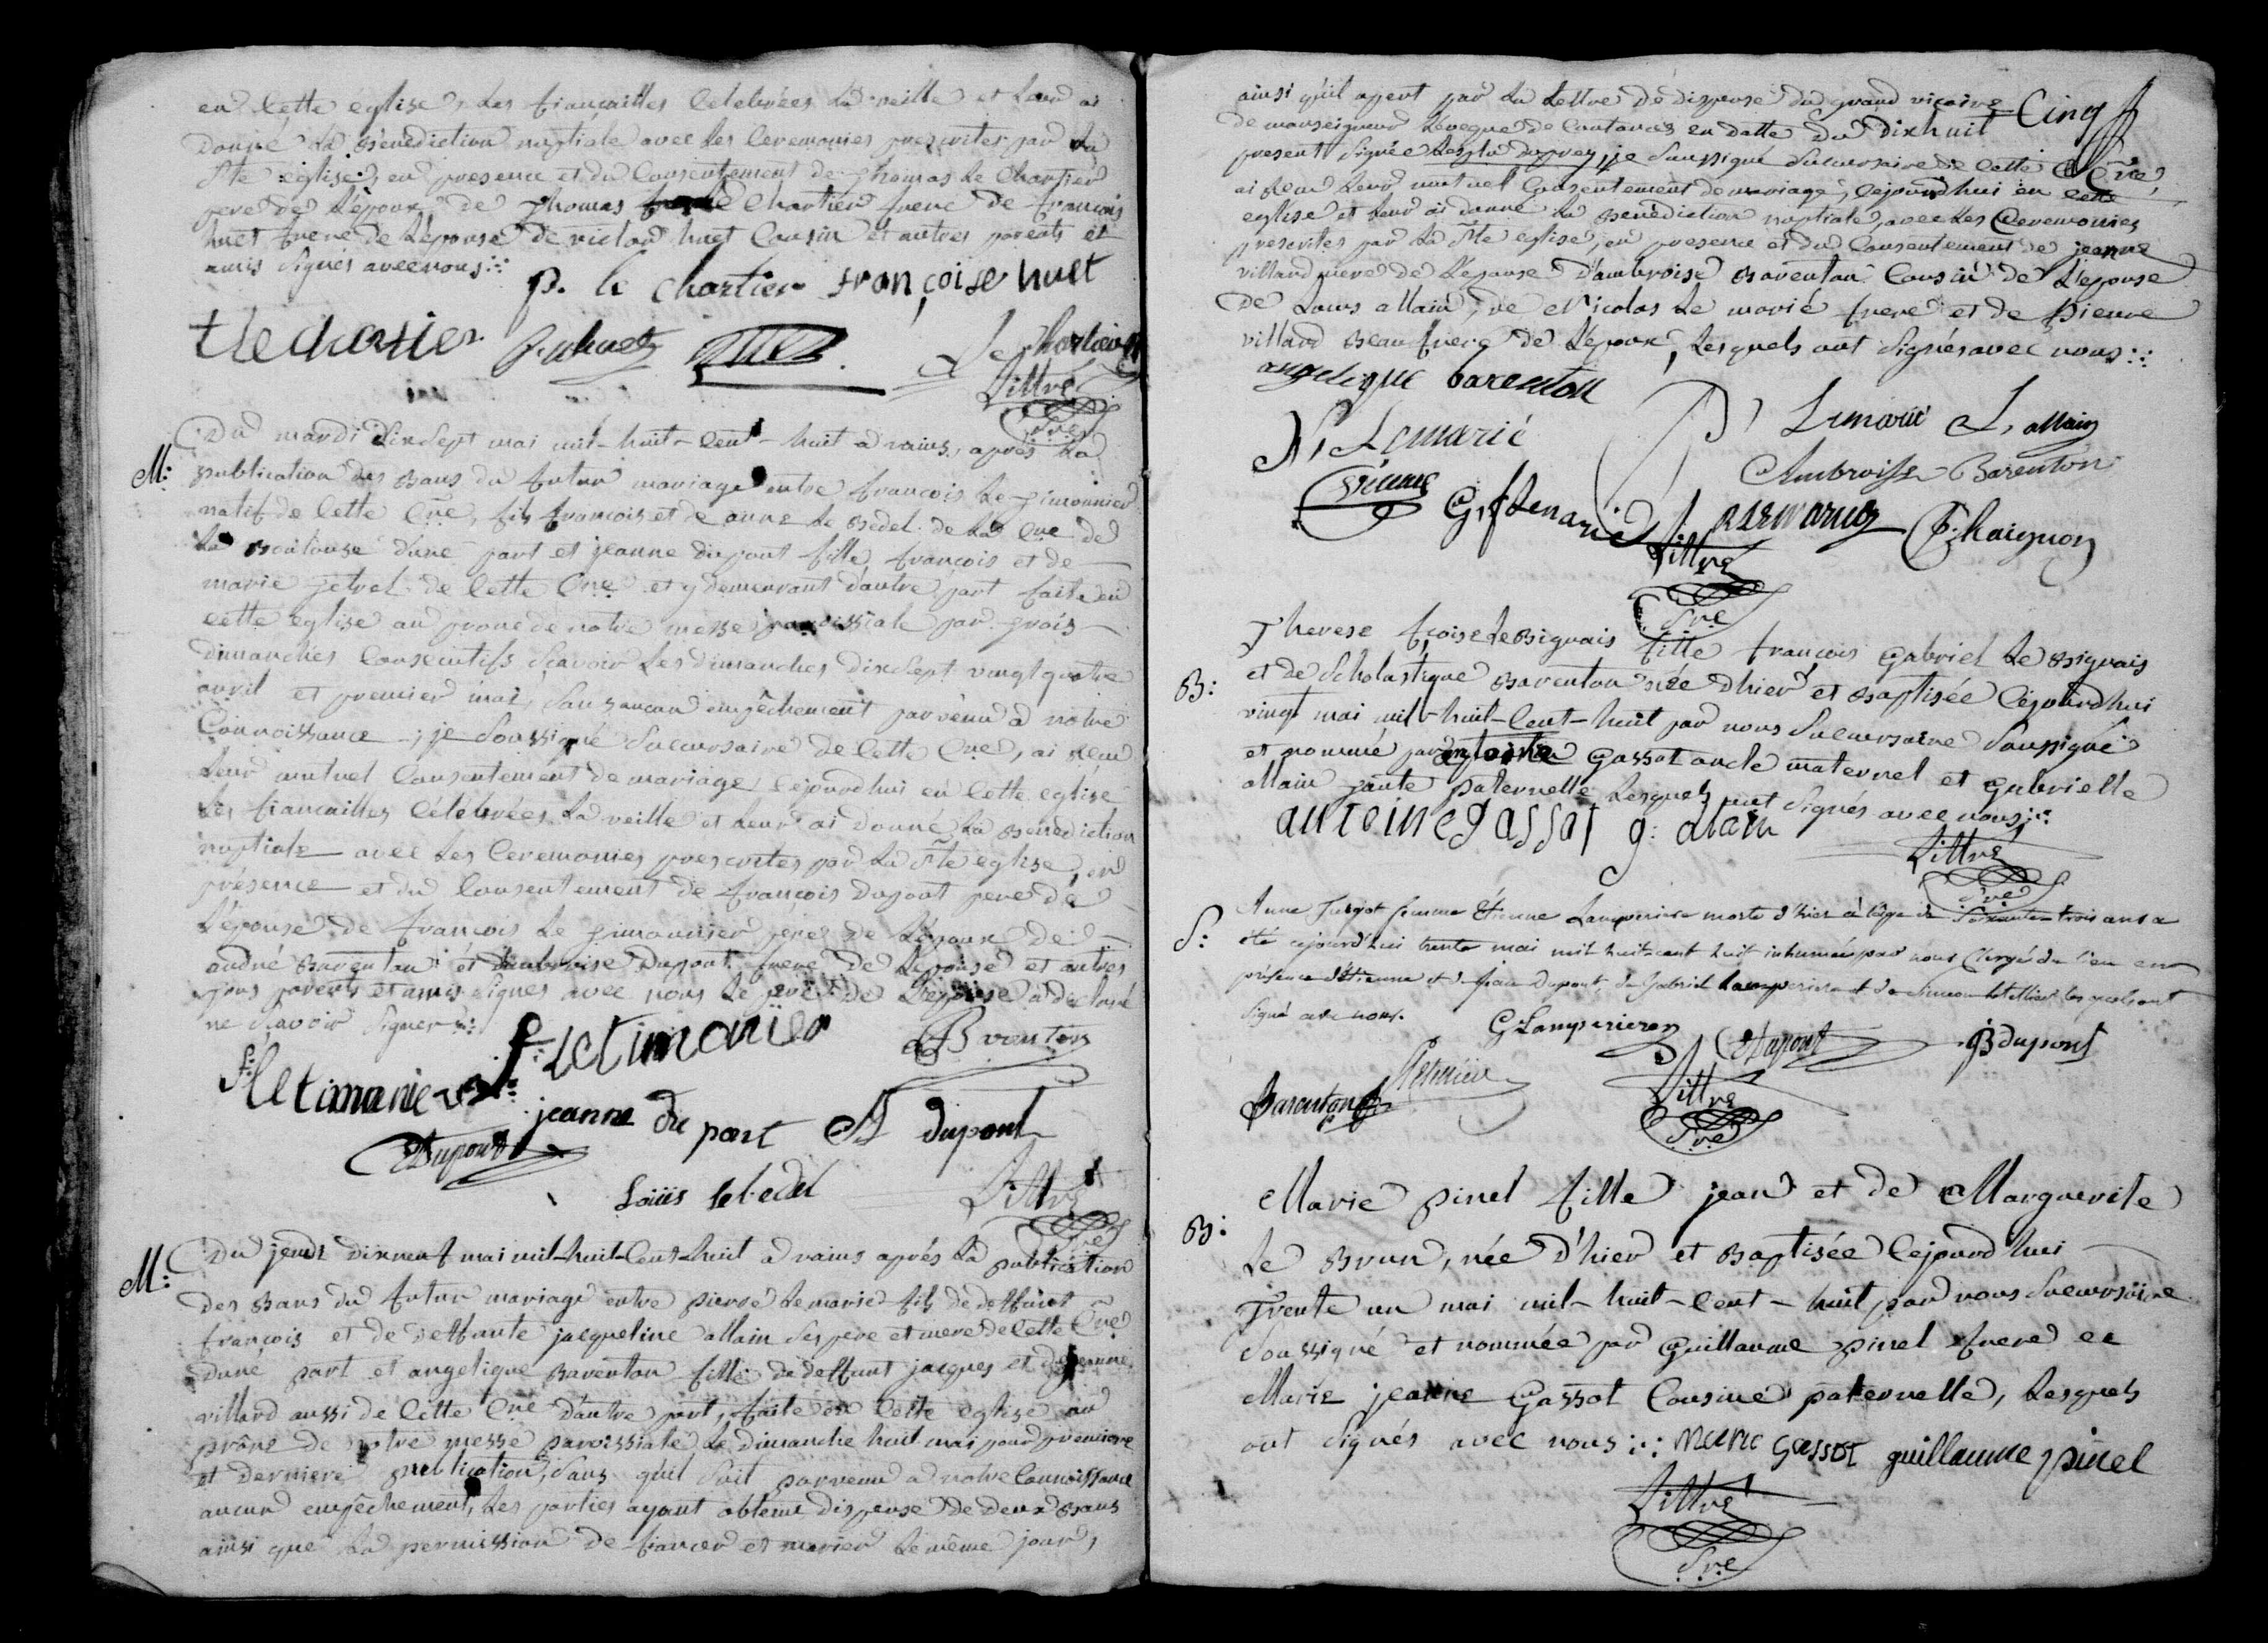 en cette eglise, les fiançailles Celebrées la veille et leur ai
donné la Bénédiction nuptiale avec les Ceremonies prescrites par la
Ste eglise, en presence et du Consentement de Thomas Le Chartier
pere de l'époux de Thomas Chartier frere de françois
huet frere de l'épouse de victor huet Cousin et autres parents et
amis signés avec nous
p. le chartier françoise huet
t le chartier huet
Le Chartier
Littré
M:
Du mardi dixsept mai mil-huit-Cent-huit à vains, aprés la
publication des Bans du futur mariage entre françois Le Timonnier
natif de Cette Cne, fils françois et de anne Le Bedel de la Cne de
la Boulouze d'une part et jeanne dupont fille françois et de
marie jetrel de Cette Cne et y demeurant d'autre part faite en
cette eglise au prone de notre messe paroissiale par trois
dimanches Consecutifs Sçavoir les dimanches dixsept vingt quatre
avril et premier mai, sans aucun empêchement parvenu à notre
Connoissance; je Soussigné Succursaire de Cette Cne, ai reçu
leur mutuel Consentement de mariage Cejourdhui en Cette eglise
les fiançailles Célébrées la veille et leur ai donné la Bénédiction
nuptiale avec les Ceremonies prescrites par la Ste eglise, en
présence et du Consentement de françois Dupont pere de
l'épouse de françois Le Timonnier pere de l'époux de
andré Barenton et d'ambroise Dupont frere de l'epouse et autres
parents et amis signés avec nous le pere de l'épouse a declaré
ne Sçavoir Signer
f letimonier
f: letimonier
Dupont jeanne du pont A dupont
Loüis lebedel
Littré
Sre
M:
Du jeudi dixneuf mai mil-huit-Cent-huit à vains aprés la publication
des Bans du futur mariage entre pierre Lemarié fils de deffunt
françois et de deffunte jacqueline allain Ses pere et mere de Cette Cne
d'une part et angelique Barenton fille de deffunt jacques et de jeanne
villard aussi de Cette Cne d'autre part, faite en Cette eglise au
prône de notre messe paroissiale le dimanche huit mai pour premiere
et derniere publication, Sans qu'il Soit parvenu à notre Connoissance
aucun empêchement, les parties ayant obtenu dispense de deux Bans
ainsi que la permission de fiancer et marier le même jour,
Cinq
ainsi qu'il apert par la Lettre de dispense du grand vicaire
de monseigneur l'évêque de Coutances en datte du dixhuit
present Signée je Soussigné Succursaire de Cette Cne,
ai reçu leur mutuel Consentement de mariage, Cejourdhui en Cette
eglise et leur ai donné la Bénédiction nuptiale avec les Ceremonies
prescrites par la Ste eglise, en presence et du Consentement de jeanne
villard mere de l'épouse d'ambroise Barenton Cousin de l'épouse
de Louis allain, de Nicolas Le marié frere et de Pierre
villard Beau frere de l'époux, lesquels ont Signés avec nous
angelique barenton
N. Lemarié P Lemarié L. allain
Ambroise Barenton
G. f lemarié Lemarié
Littré
Sre
B:
Therese fçoise LeBiguais fille françois Gabriel Le Biguais
et de Scholastique Barenton née d'hier et Baptisée Cejourdhui
vingt mai mil-huit-Cent-huit par nous Succursaire Soussigné
et nommé par antoine Gassot oncle maternel et Gabrielle
allain tante paternelle lesquels ont signés avec nous
antoine gassot g: alain
Littré
Sre
S:
Anne Turgot femme Etienne Lamperiere morte d'hier à l'âge de Soixante trois ans a
été cejourd'hui trente mai mil huit cent huit inhumée par nous Clergé du lieu en
présence d'Etienne et de Dupont, de Gabriel Lamperiere et de Simeon letellier lesquels ont
Signé avec nous.
G Lamperiere Dupont JB dupont
Barenton
Littré
Sre
B:
Marie pinel fille jean et de Marguerite
Le Brun, née d'hier et Baptisée Cejourdhui
Trente un mai mil-huit-Cent-huit par nous Succursaire
Soussigné et nommée par Guillaume pinel frere et
Marie jeanne Gassot Cousine paternelle, lesquels
ont signés avec nous marie gassot guillaume pinel
Littré
Sre